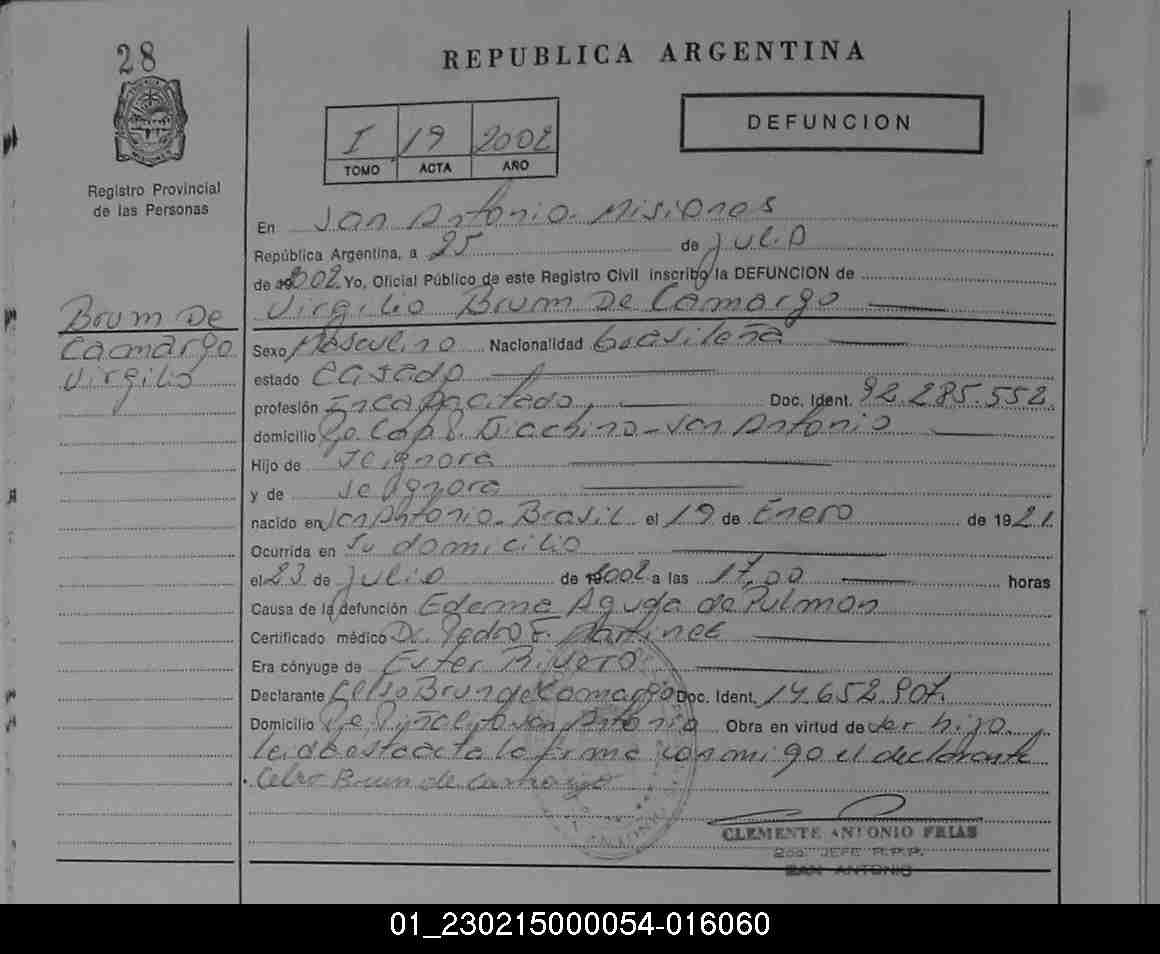 28
REPUBLICA ARGENTINA
I 19 2002
TOMO ACTA AÑO
DEFUNCION
Registro Provincial
de las Personas
En San Antonio. Misiones
República Argentina, a 25 de Julio
de 2002. Yo, Oficial Público de este Registro Civil inscribo la DEFUNCION de
Virgilio Brum De Camargo
Brum De
Camargo
Virgilio
Sexo Masculino Nacionalidad brasileña
estado Casado
profesión Incapacitado, Doc. Ident. 92.285.552.
domicilio San Antonio
Hijo de Se ignora
y de Se ignora
nacido en San Antonio. Brasil el 19 de Enero de 1921.
Ocurrida en Su domicilio
el 23 de Julio de 2002 a las 17,00 horas
Causa de la defunción Edema Aguda de Pulmon
Certificado médico Dr. Pedro F. Martinez
Era cónyuge de Ester Rivero
Declarante Celso Brun de Camargo Doc. Ident. 14.652.907.
Domicilio San Antonio Obra en virtud de ser hijo.
leida esta acta la firma conmigo el declarante
Celso Brum de Camargo
CLEMENTE ANTONIO FRIAS
2do. JEFE R.P.P.
SAN ANTONIO
01_230215000054-016060